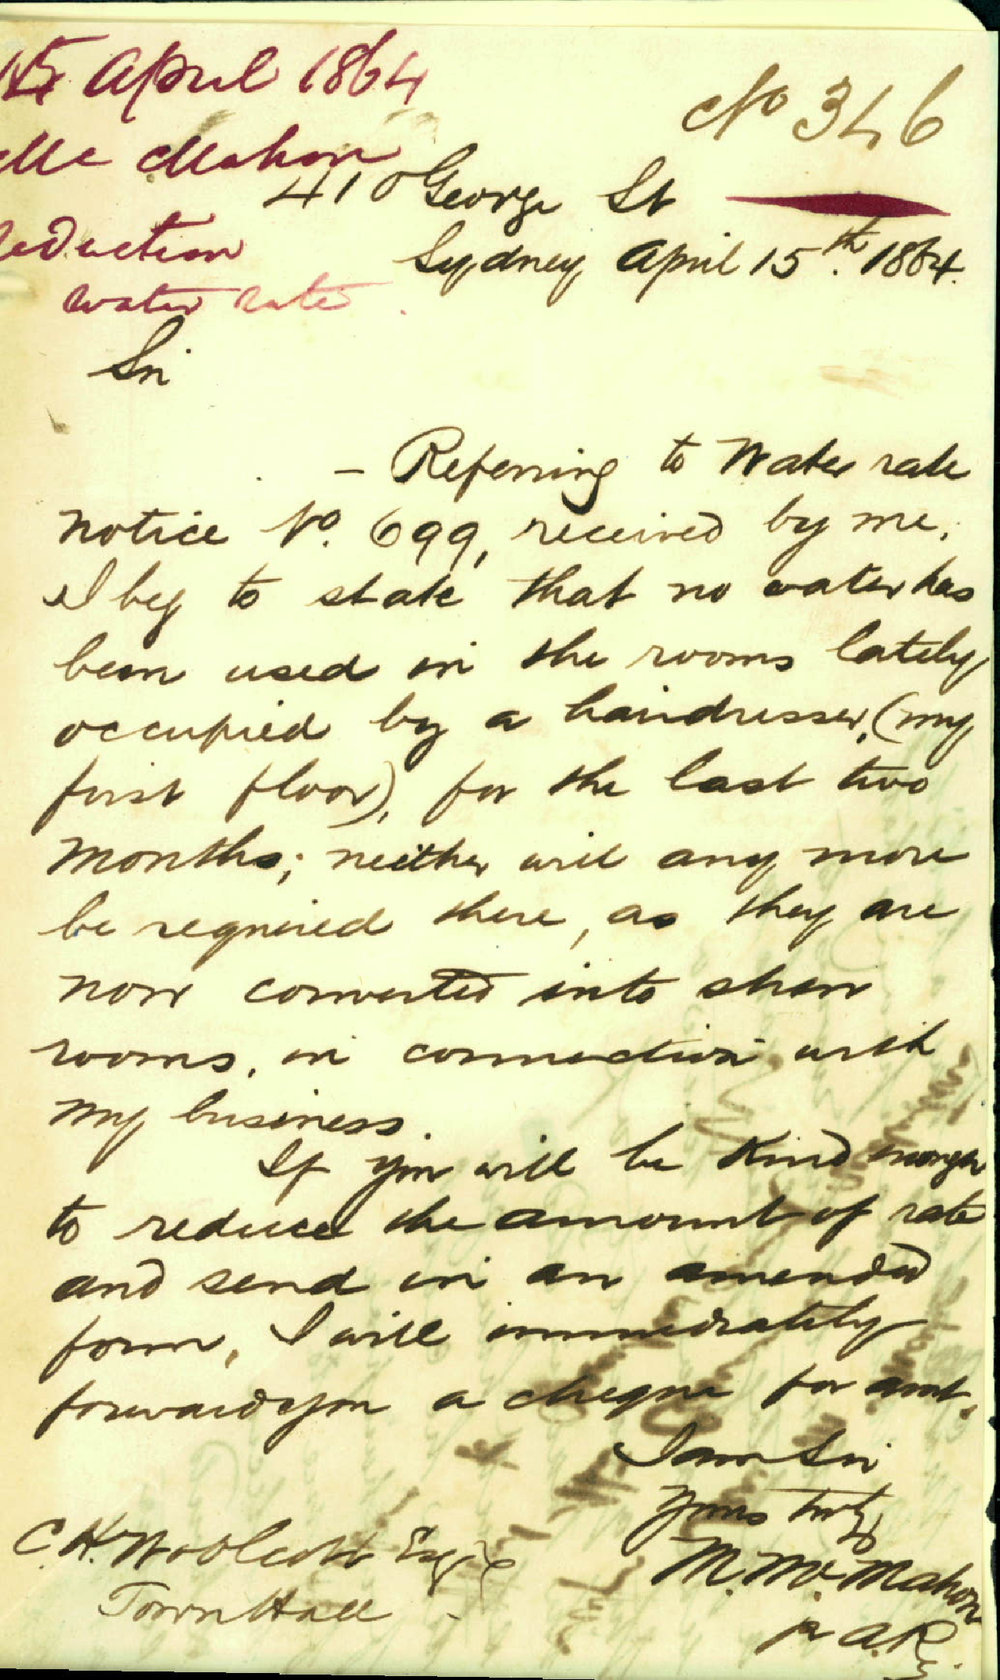 15 April 1864
No 346
Mc Mahon
410 George St
reduction
Sydney April 15th. 1864.
water rate
Sir
– Referring to Water rate
notice No. 699, received by me,
I beg to state that no water has
been used in the rooms lately
occupied by a hairdresser, (my
first floor), for the last two
months; neither will any more
be required there, as they are
now converted into show
rooms, in connection with
my business.
If you will be kind enough
to reduce the amount of rate
and send in an amended
form, I will immediately
forward you a cheque for amt.
I am Sir
Yours truly
M. Mc. Mahon
pr A.R.
C. H. Woolcott Esqre
Town Hall